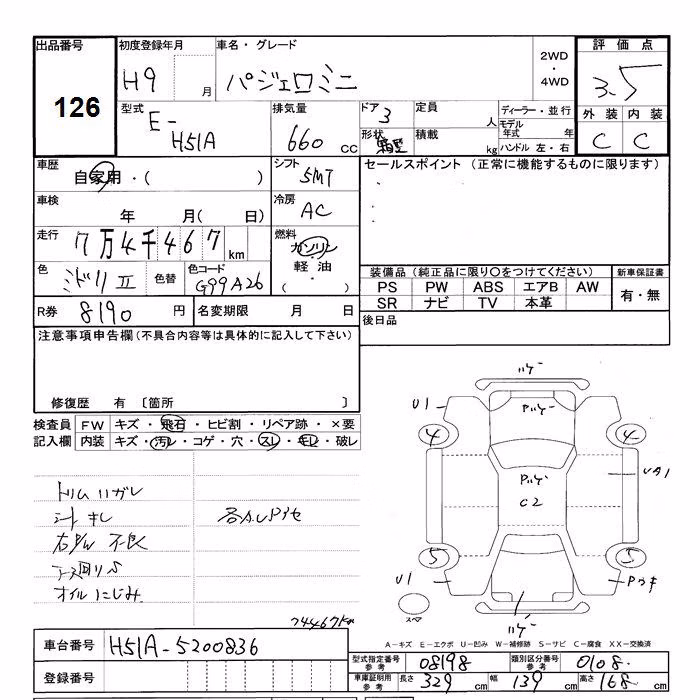 出品番号 初度登録年月 車名・グレード 2WD・4WD 評価点
126 H9 月 パジェロミニ 3.5
型式 E-H51A 排気量 660 cc ドア 3 定員 人 ディーラー・並行 外装 内装
形状 箱型 積載 kg モデル年式 年 ハンドル 左・右 C C
車歴 自家用・( ) シフト 5MT セールスポイント (正常に機能するものに限ります)
車検 年 月( 日) 冷房 AC
走行 7万4千467 km 燃料 ガソリン・軽油 ( ・ )
色 ミドリII 色替 色コード G99A26 装備品 (純正品に限り○をつけてください) 新車保証書
PS PW ABS エアB AW 有・無
SR ナビ TV 本革
R券 8190 円 名変期限 月 日 後日品
注意事項申告欄(不具合内容等は具体的に記入して下さい)
修復歴 有 〔箇所 〕
検査員記入欄 FW キズ・飛石・ヒビ割・リペア跡・×要
内装 キズ・汚レ・コゲ・穴・スレ・キレ・破レ
トリムハガレ
シートキレ
右P/W 不良
オイルにじみ
74467km
ハゲ
U1 ハゲ
4 4
ハゲ
C2
5 5
U1
スペア
A-キズ E-エクボ U-凹み W-補修跡 S-サビ C-腐食 XX-交換済
車台番号 H51A-5200836
登録番号
型式指定番号参考 08198 類別区分番号参考 0108
車庫証明用参考 長さ 329 cm 幅 139 cm 高さ 168 cm